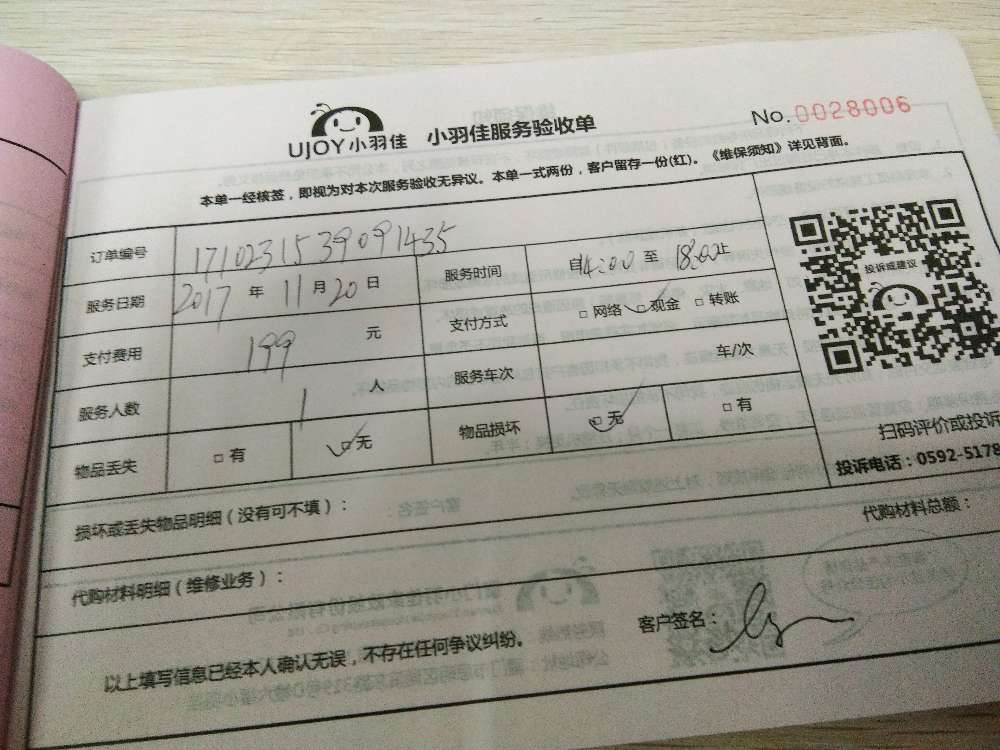 UJOY小羽佳 小羽佳服务验收单
No.0028006
本单一经核签，即视为对本次服务验收无异议。本单一式两份，客户留存一份(红)。《维保须知》详见背面。
订单编号 17102315 39091435
服务日期 2017 年 11 月 20 日 服务时间 自14:00 至 18:00止
支付费用 199 元 支付方式 □ 网络 □ 现金 □ 转账
服务人数 1 人 服务车次 车/次
物品丢失 □ 有 □ 无 物品损坏 □ 无 □ 有
投诉或建议
扫码评价或投诉
投诉电话：0592-5178
损坏或丢失物品明细（没有可不填）：
代购材料明细（维修业务）： 代购材料总额：
以上填写信息已经本人确认无误，不存在任何争议纠纷。 客户签名：